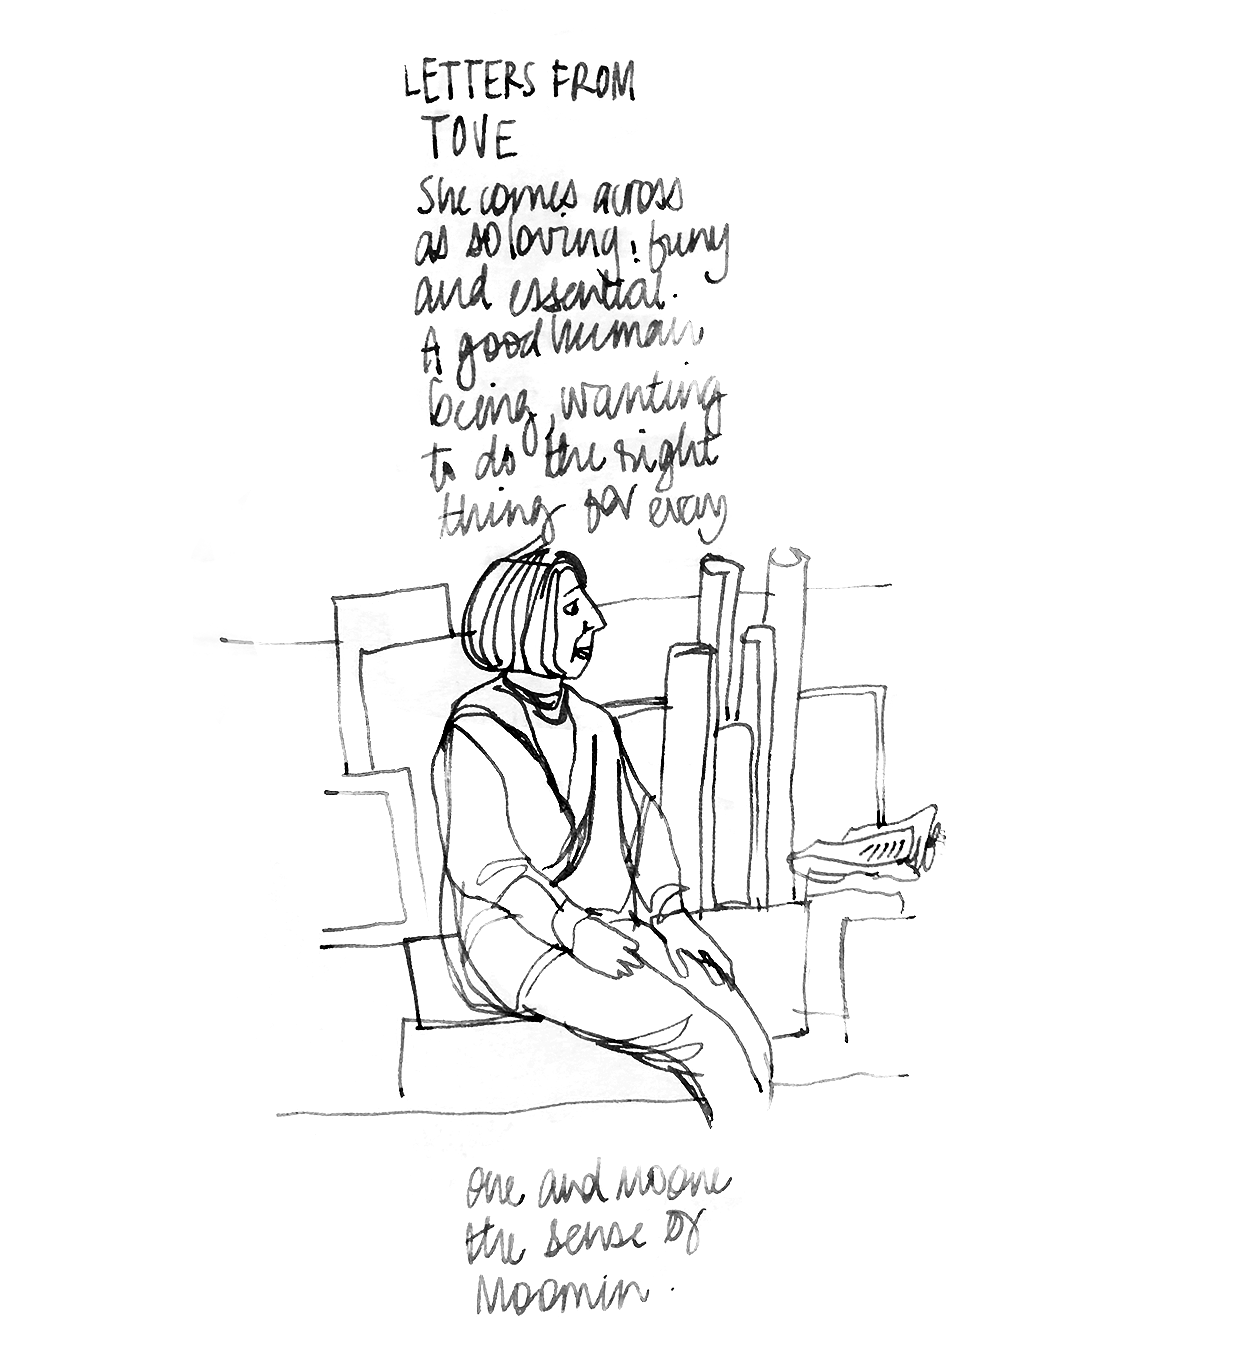 LETTERS FROM
TOVE
She comes across
as so loving, funy
and essential.
A good human
being, wanting
to do the right
thing for every
one and
the sense of
Moomin.